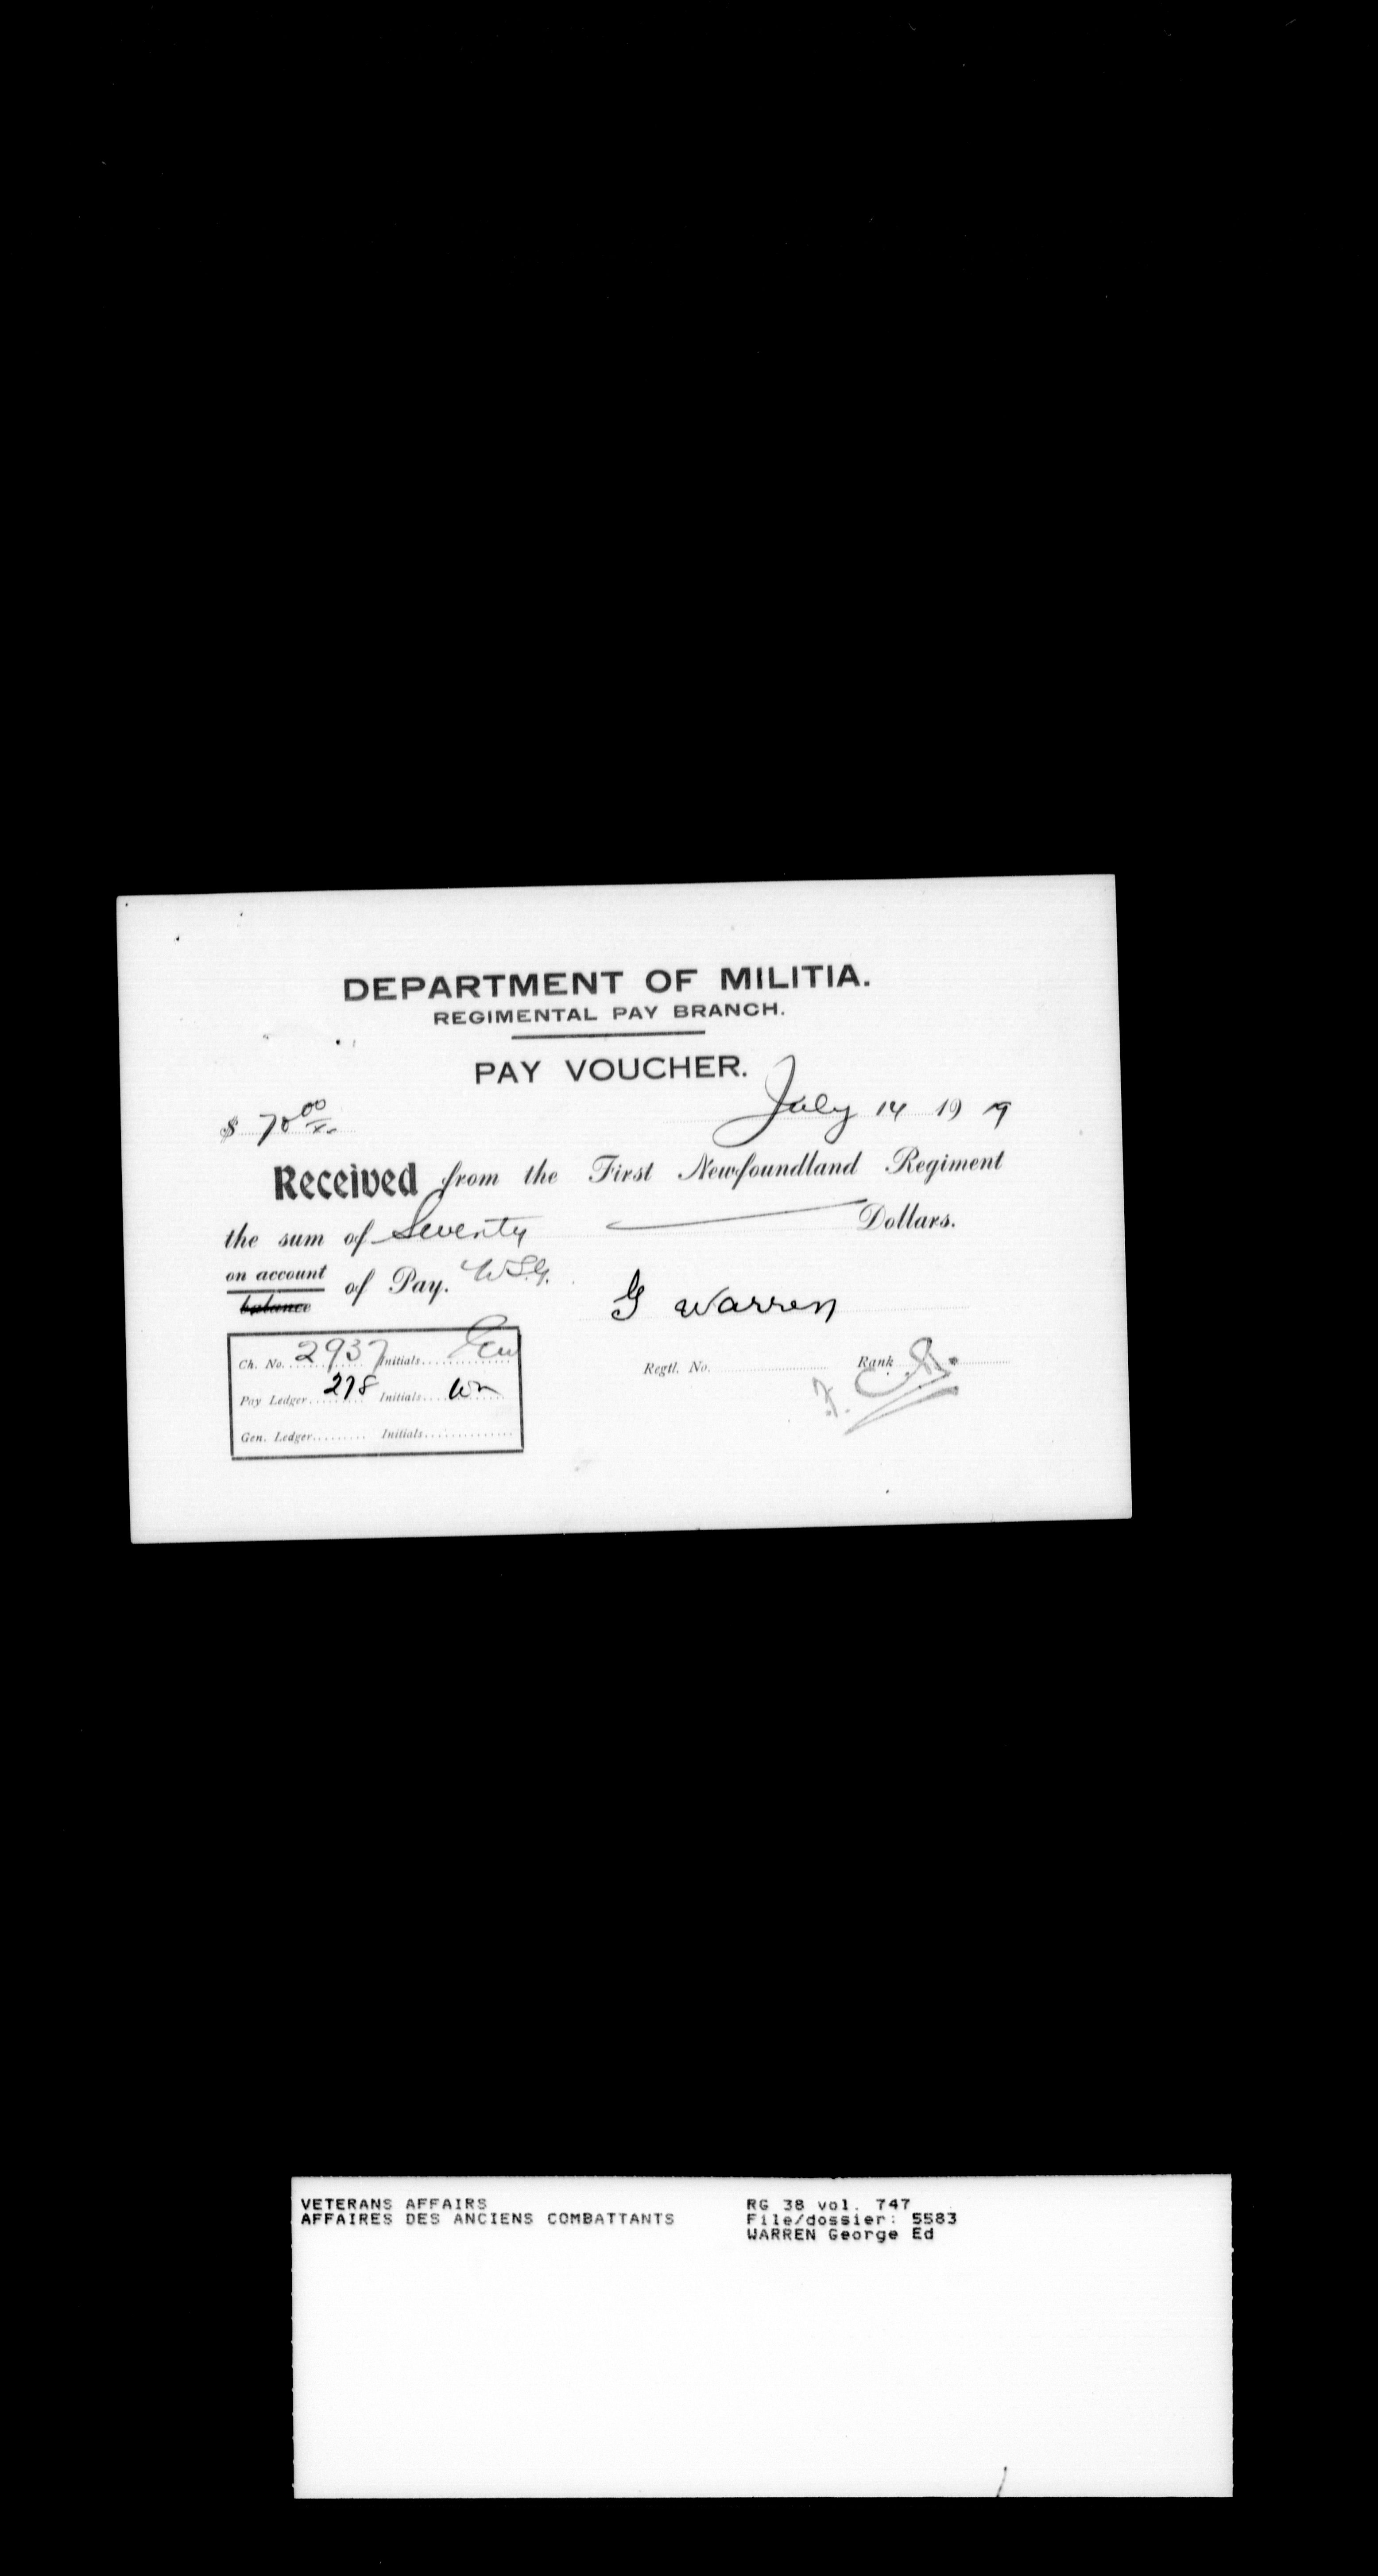 DEPARTMENT OF MILITIA.
REGIMENTAL PAY BRANCH.
PAY VOUCHER.
$ 70 00 July 14 19 19
Received from the First Newfoundland Regiment
the sum of Seventy Dollars.
on account
balance of Pay. W.S.G.
G Warren
Ch. No. 2937 Initials
Regtl. No. Rank
Pay Ledger 278 Initials
Gen. Ledger Initials
VETERANS AFFAIRS RG 38 vol. 747
AFFAIRES DES ANCIENS COMBATTANTS File/dossier: 5583
WARREN George Ed